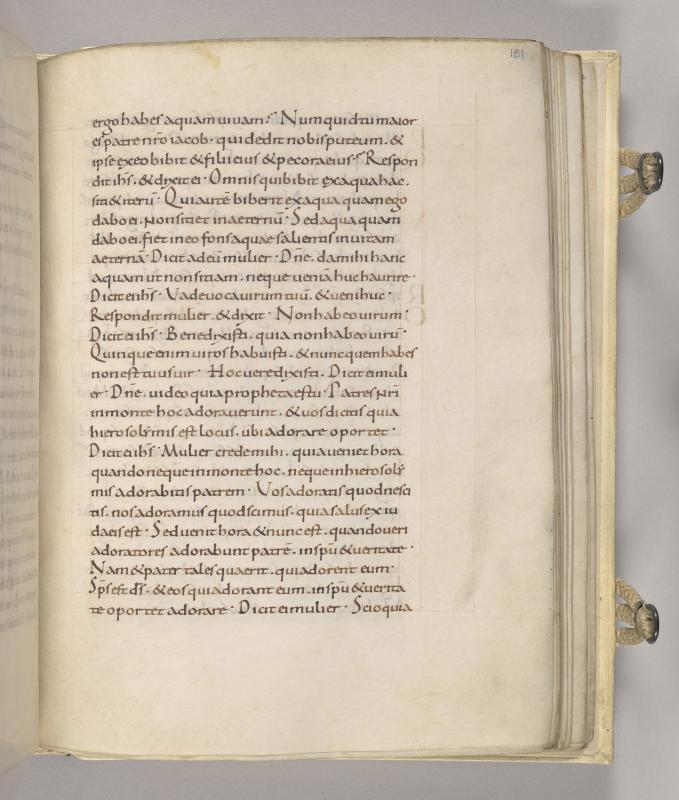 181
ergo habes aquam uiuam· Numquid tu maior
es patre nr̄o iacob· qui dedit nobis puteum· &
ipse ex eo bibit & filii eius & pecora eius· Respon
dit ihs̄· & dixit ei· Omnis qui bibit ex aqua hac·
siti& iterū· Qui autē biberit ex aqua quam ego
dabo ei· non siti& in aeternū· Sed aqua quam
dabo ei· fiet in eo fons aquae salientis in uitam
aeternā· Dicit ad eū mulier· Dn̄e· da mihi hanc
aquam ut non sitiam· neque ueniā huc haurire·
Dicit ei ihs̄· Vade uoca uirum tuū· & ueni huc·
Respondit mulier· & dixit· Non habeo uirum·
Dicit ei ihs̄· Bene dixisti· quia non habeo uirū·
Quinque enim uiros habuisti· & nunc quem habes
non est tuus uir· Hoc uere dixisti· Dicit ei muli
er· Dn̄e· uideo quia propheta es tu· Patres nr̄i
in monte hoc adorauerunt· & uos dicitis quia
hierosolymis est locus· ubi adorare oportet·
Dicit ei ihs̄· Mulier crede mihi· quia ueniet hora
quando neque in monte hoc· neque in hierosoly
mis adorabitis patrem· Vos adoratis quod nesci
tis· nos adoramus quod scimus· quia salus ex iu
daeis est· Sed uenit hora & nunc est· quando ueri
adoratores adorabunt patrē· in sp̄u & ueritate·
Nam & pater tales quaerit· qui adorent eum·
Sp̄s est ds̄· & eos qui adorant eum· in sp̄u & uerita
te oportet adorare· Dicit ei mulier· Scio quia